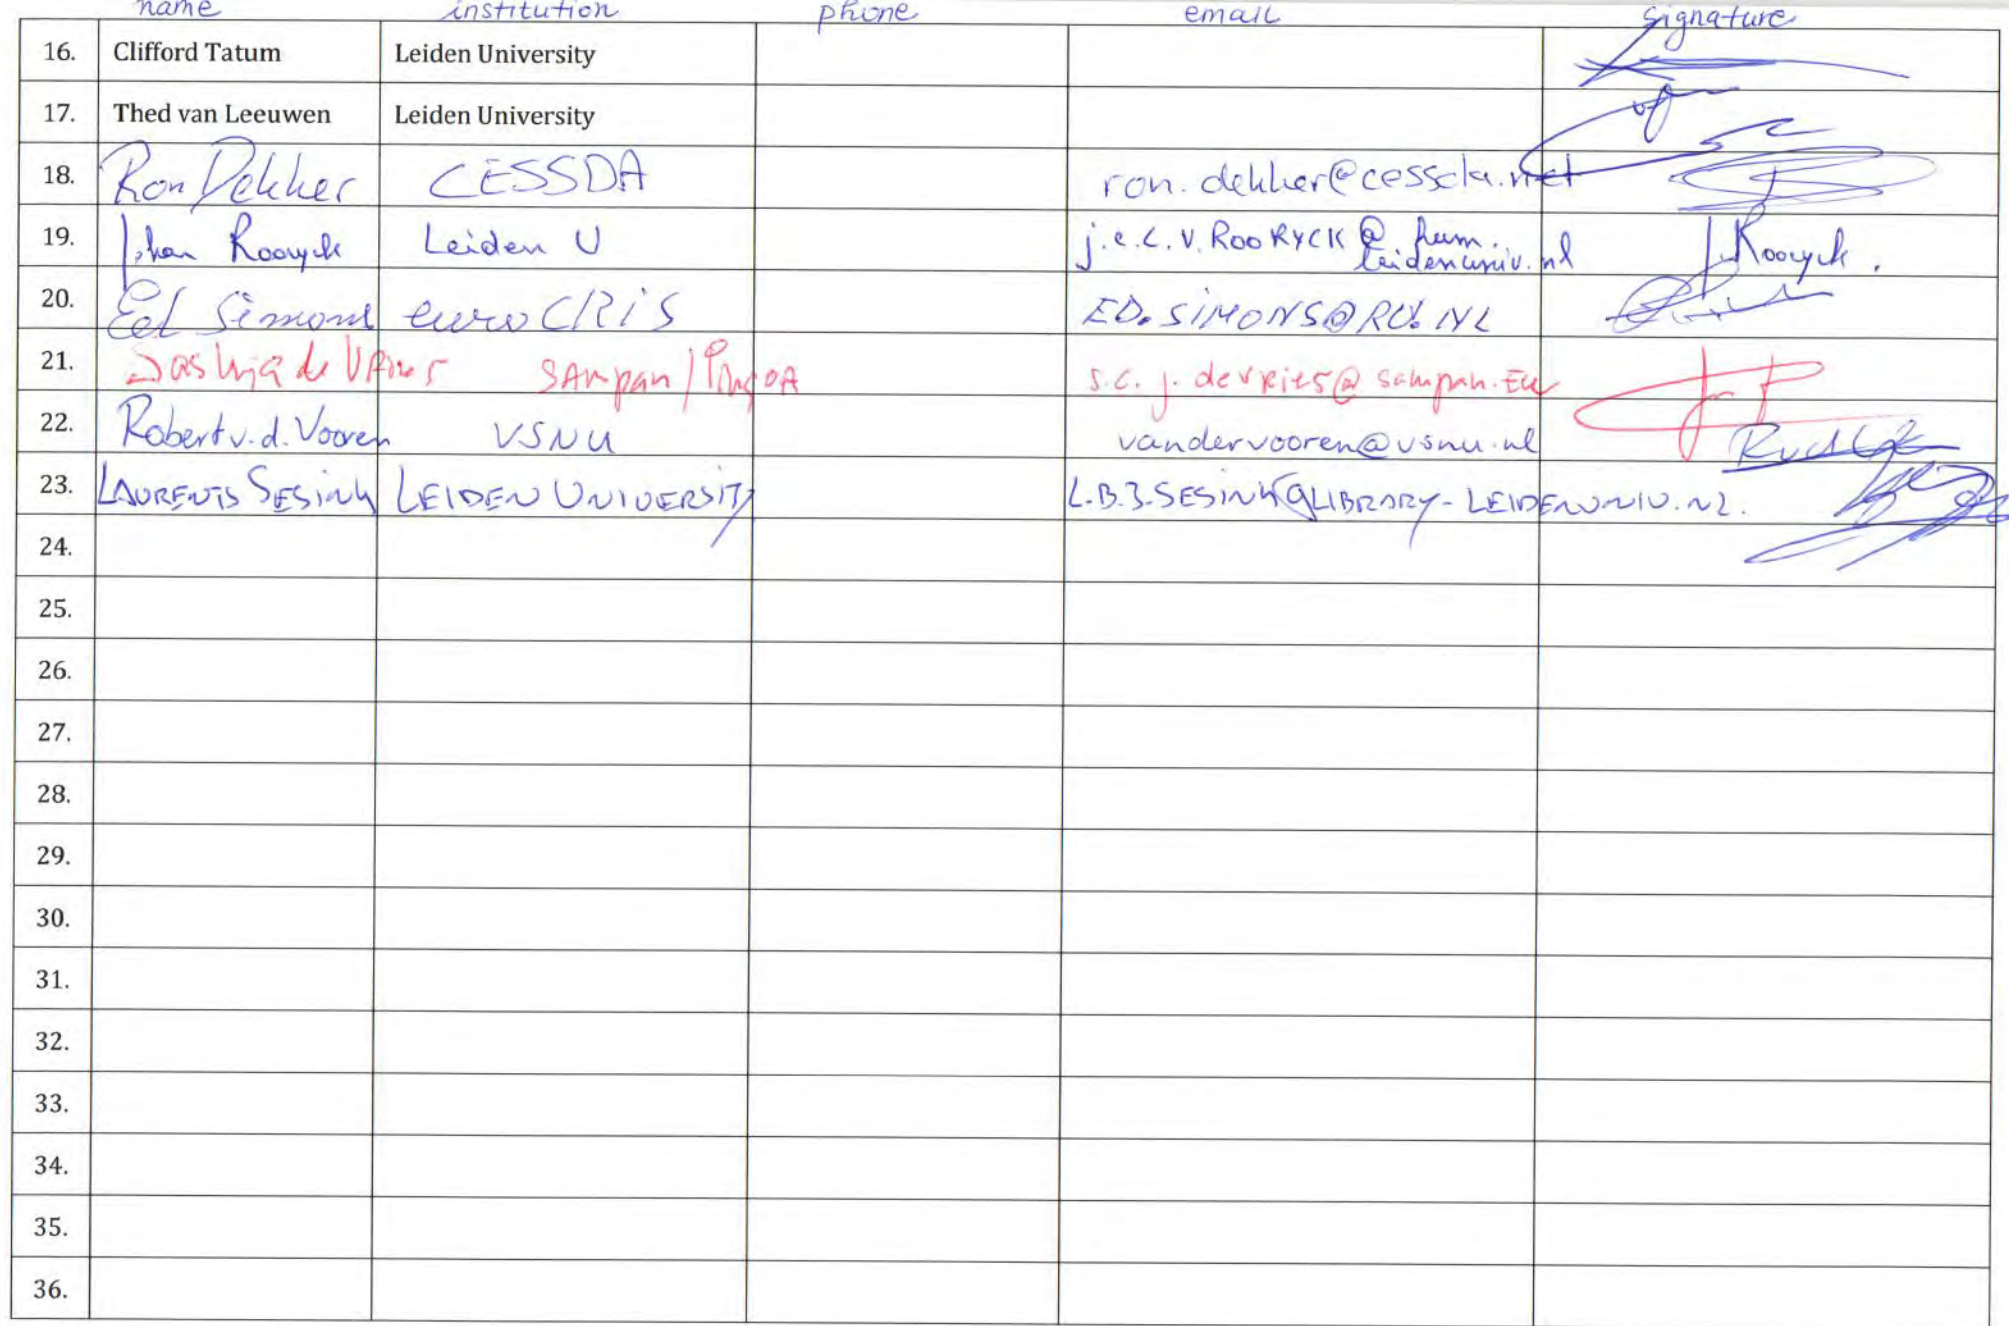 name institution phone email signature
16. Clifford Tatum Leiden University
17. Thed van Leeuwen Leiden University
18. Ron Dekker CESSDA ron.dekker@cessda.net
19. Johan Rooryck Leiden U j.e.c.v.ROORYCK@hum. J. Rooryck.
leidenuniv.nl
20. Ed Simons euroCRIS ED.SIMONS@RU.NL
21. Saskia de Vries SAMpan/ s.c.j.devries@sampan.eu
22. Robert v.d. Vooren VSNU vandervooren@vsnu.nl
23. LAURENTS SESINK LEIDEN UNIVERSITY L.B.J.SESINK@LIBRARY.LEIDENUNIV.NL.
24.
25.
26.
27.
28.
29.
30.
31.
32.
33.
34.
35.
36.